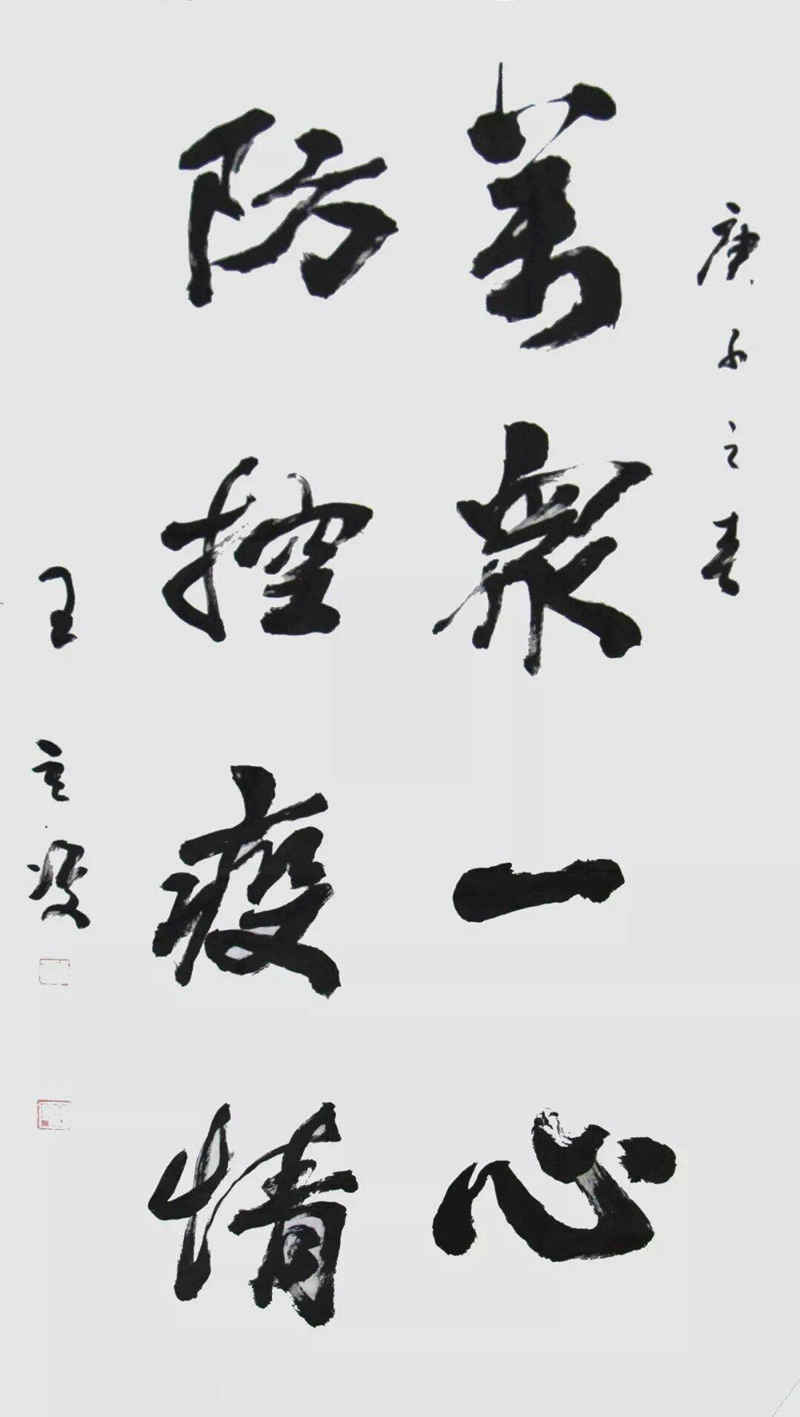 庚子之春
萬衆一心
防控疫情
王